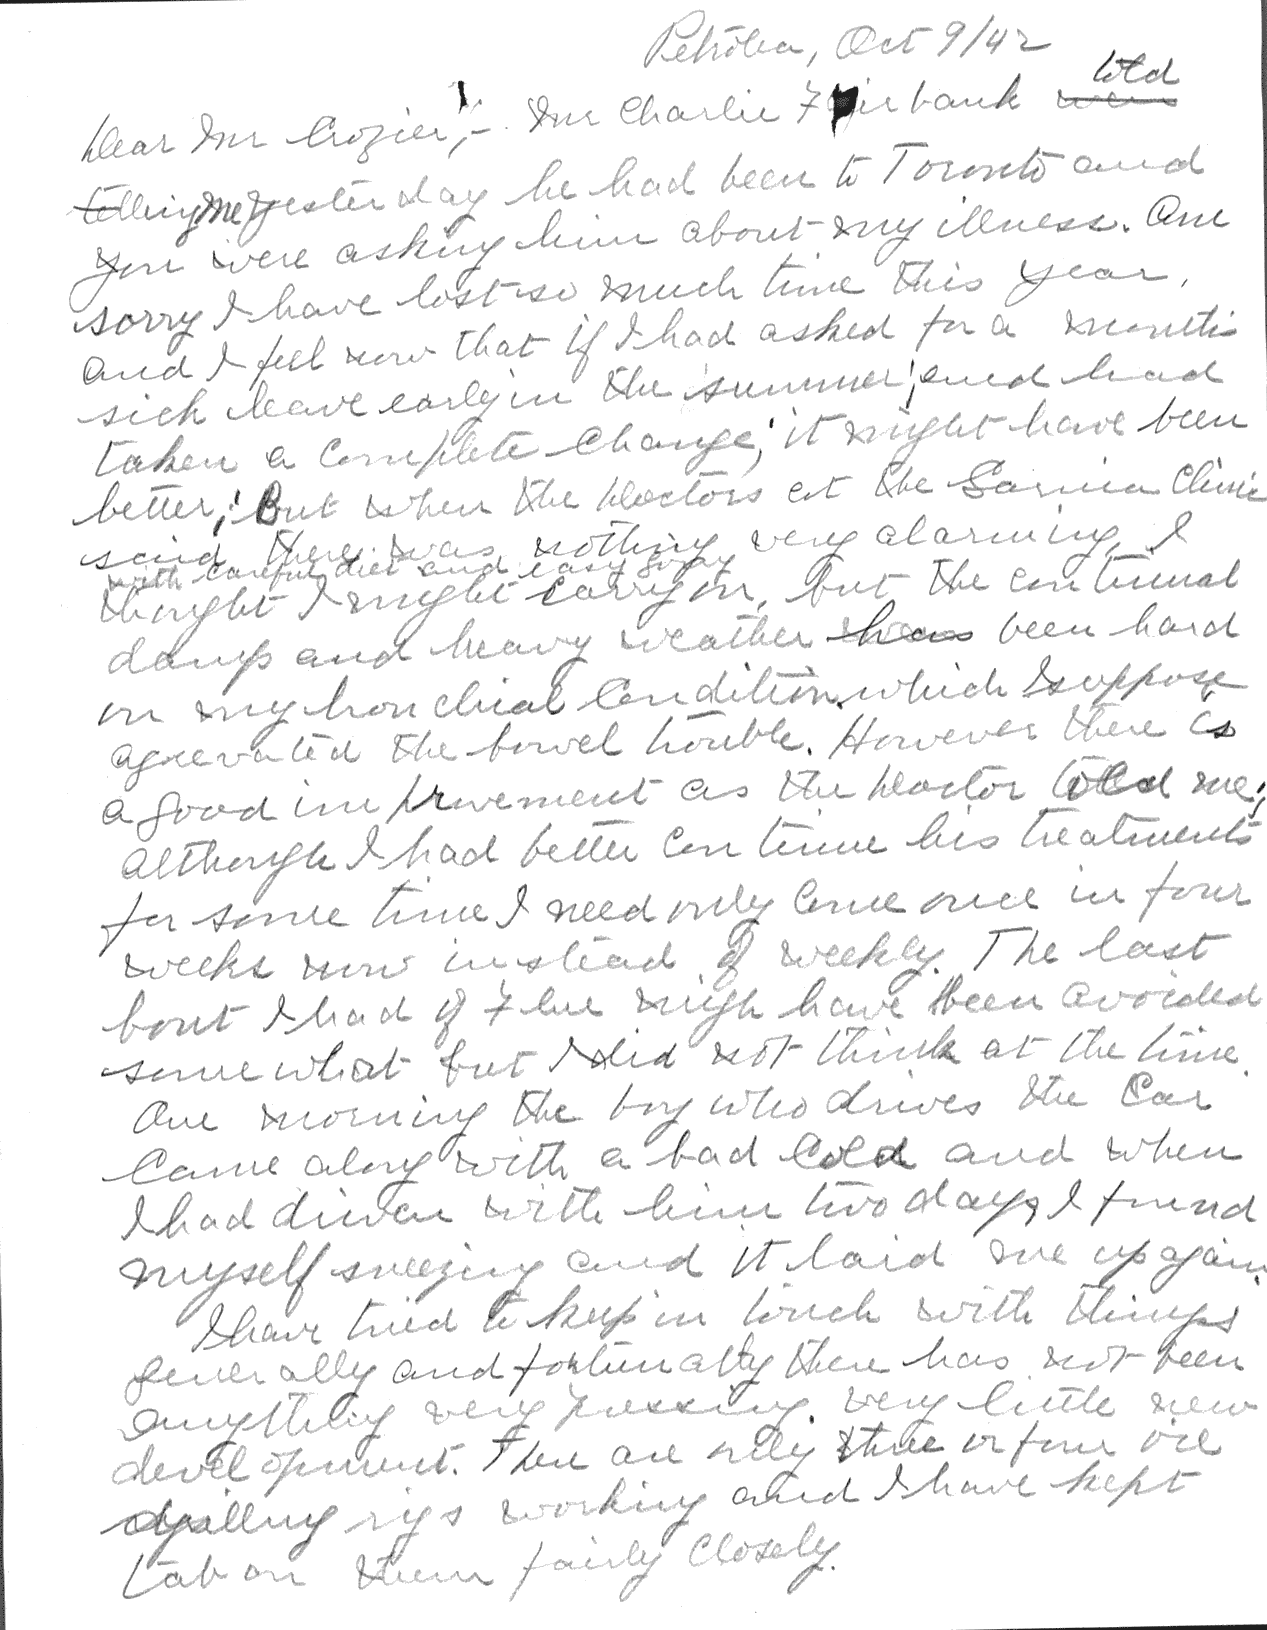 Petrolea, Oct 9/42
Dear Mr Crozier,- Mr Charlie Fairbank told
me yesterday he had been to Toronto and
you were asking him about my illness. Am
sorry I have lost so much time this year,
and I feel now that if I had asked for a months
sick leave early in the summer, and had
taken a complete change, it might have been
better; But when the Doctors at the Sarnia Clinic
said there was nothing very alarming, I
with careful diet and easy going
thought I might carry on, but the continual
damp and heavy weather has been hard
on my bronchial condition which I suppose
agrevated the bowel trouble. However there is
a good improvement as the Doctor told me;
although I had better continue his treatments
for some time I need only come once in four
weeks now instead of weekly. The last
bout I had of Flue migh have been avoided
somewhat but I did not think at the time.
One morning the boy who drives the Car
Came along with a bad Cold and when
I had driven with him two days, I found
myself sneezing and it laid me up again.
I have tried to keep in touch with things
generally and fortunatly there has not been
anything very pressing, very little new
development. There are only three or four oil
drilling rigs working and I have kept
tab on them fairly closely.